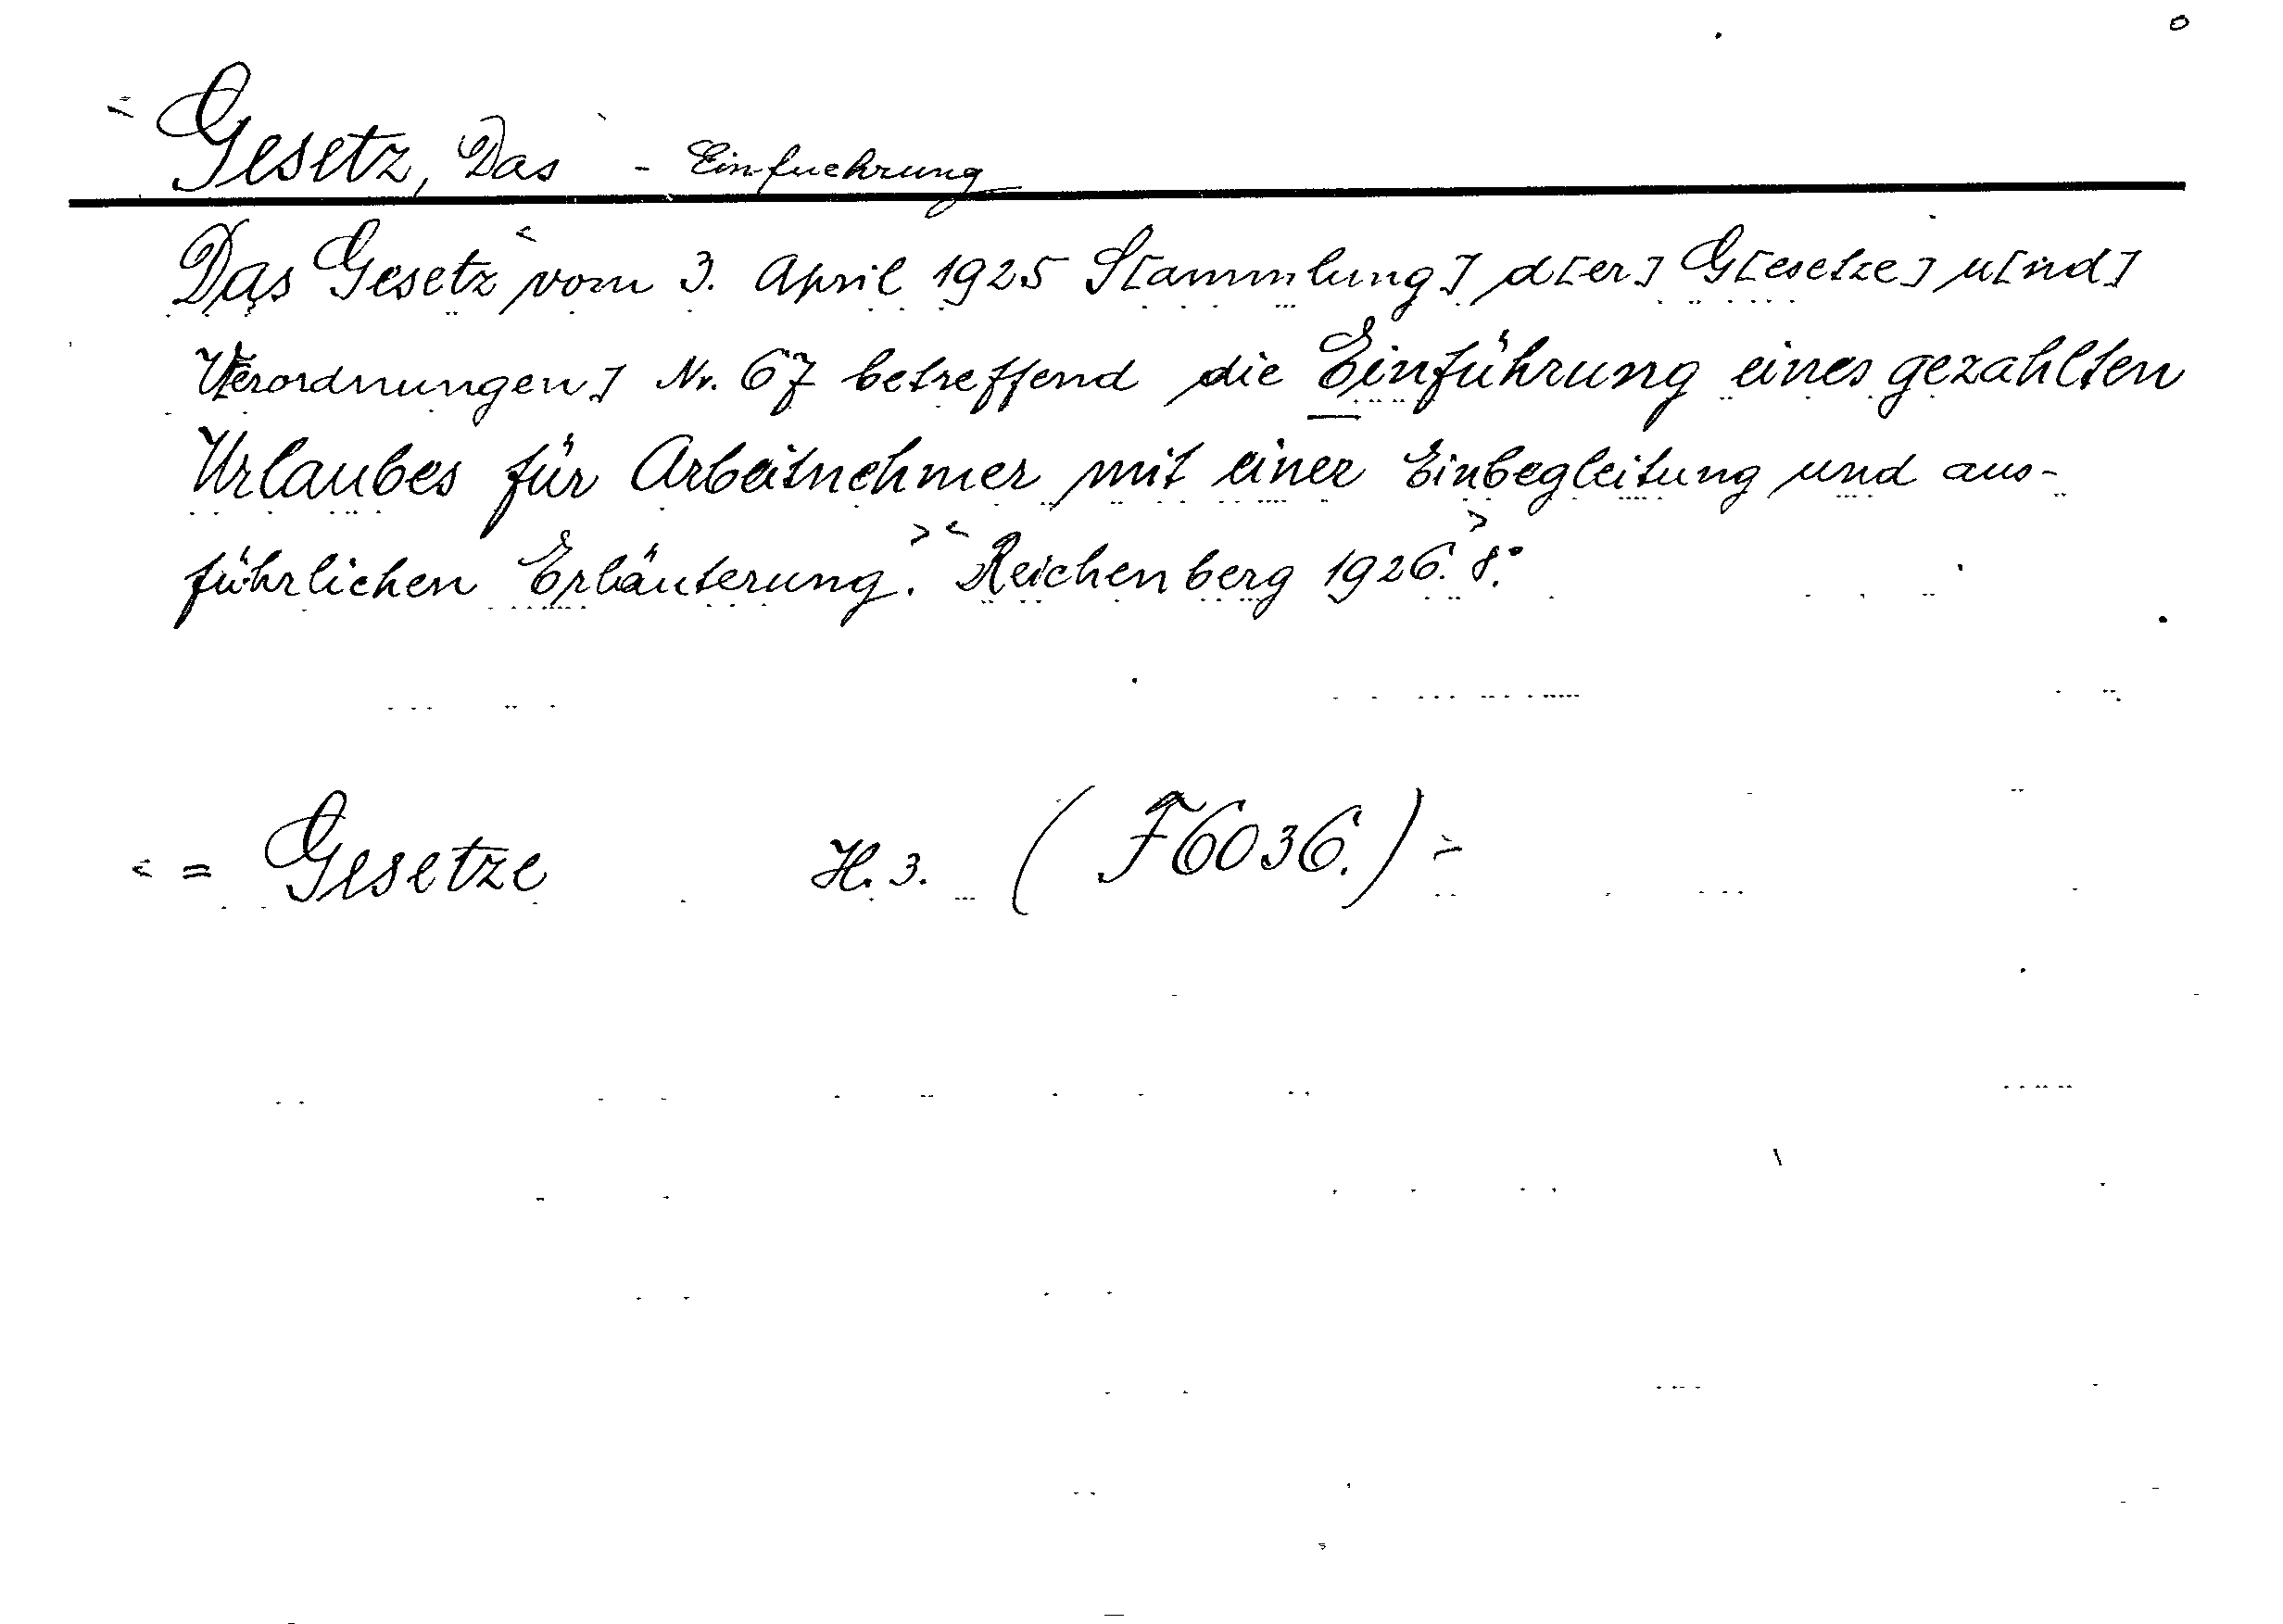 Gesetz, Das - Einfuehrung
Das Gesetz vom 3. April 1925 S[ammlung] d[er] G[esetze] u[nd]
Verordnungen] Nr. 67 betreffend die Einführung eines gezahlten
Urlaubes für Arbeitnehmer mit einer Einbegleitung und aus-
führlichen Erläuterung. Reichenberg 1926. 8°.
= Gesetze H. 3. (F6036.)